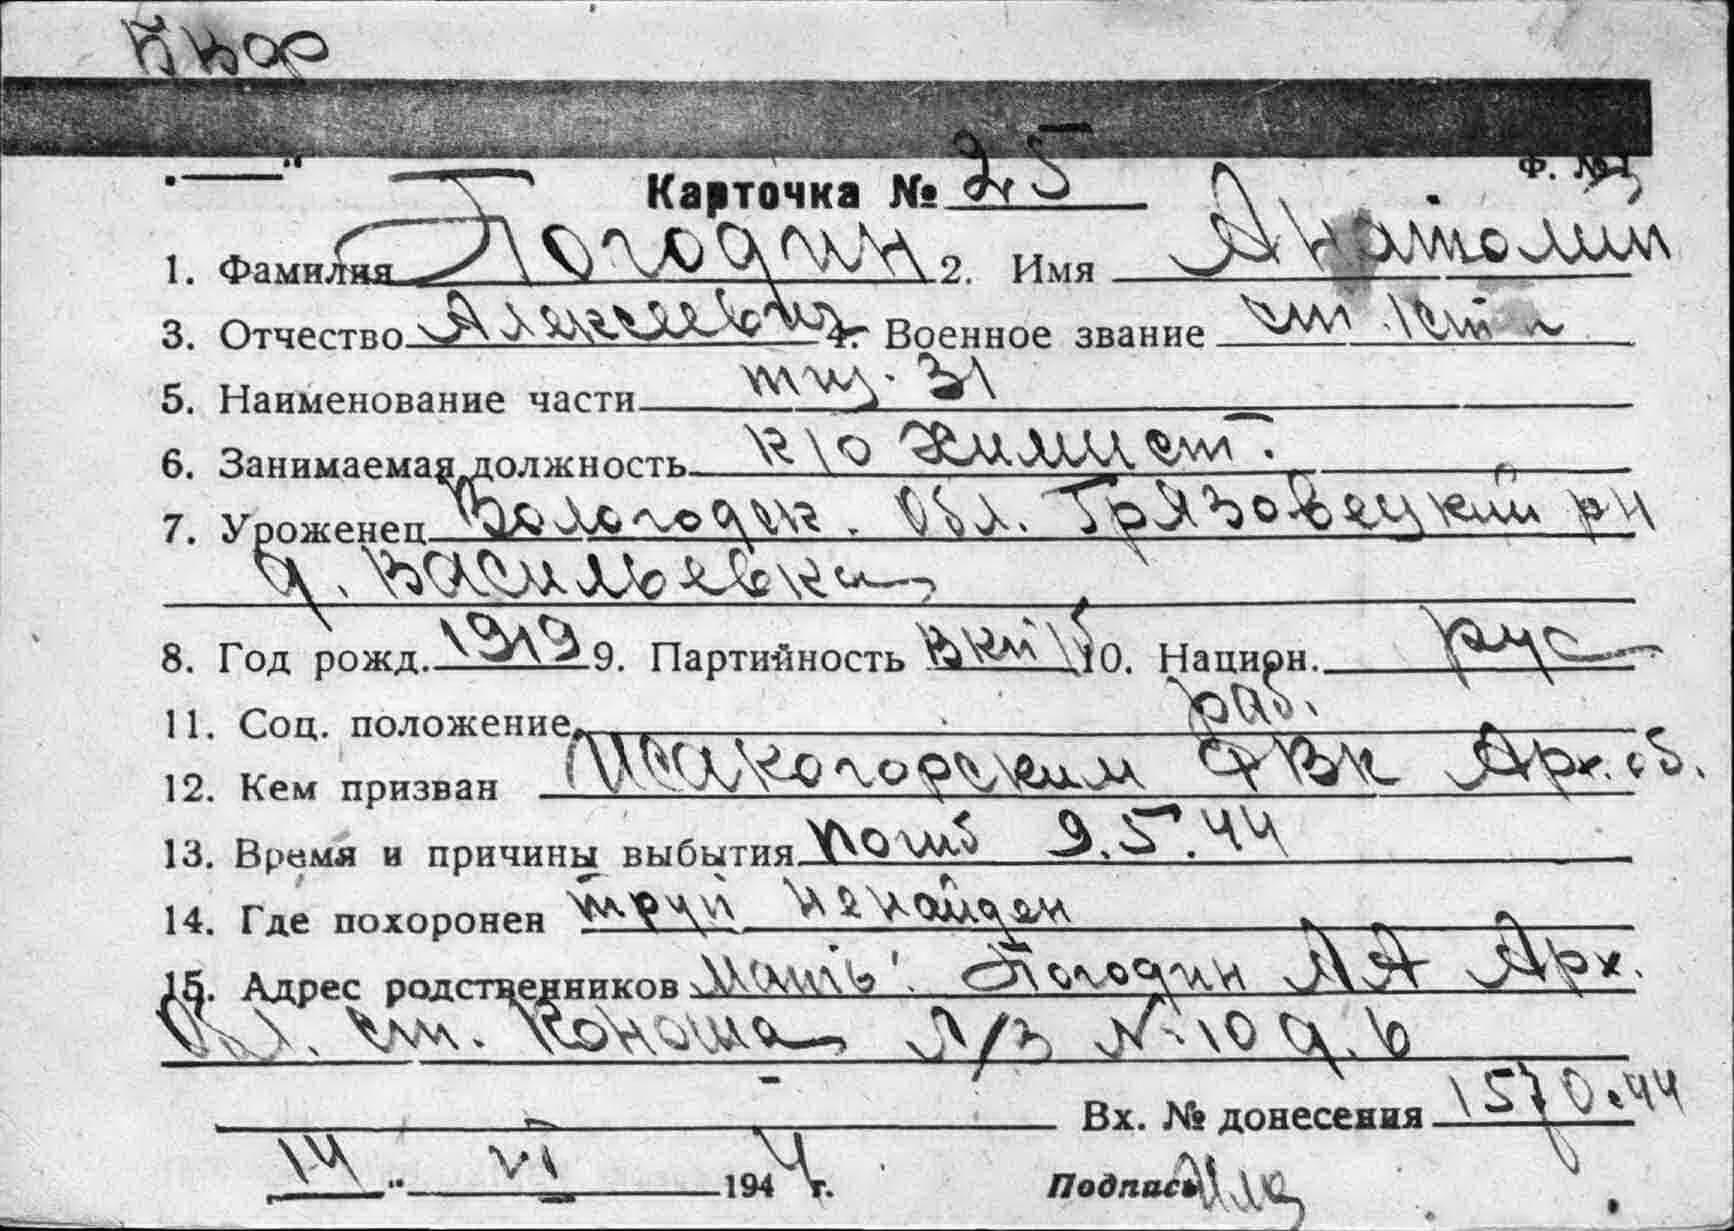 Карточка № 25
1. Фамилия Погодин 2. Имя Анатолий
3. Отчество Алексеевич 4. Военное звание
5. Наименование части тщ. 31
6. Занимаемая должность к/о химист.
7. Уроженец Вологодск. Обл. Грязовецкий рн
д. Васильевка
8. Год рожд. 1919 9. Партийность ВКП/б 10. Национ. рус
11. Соц. положение раб.
12. Кем призван Исакогорским РВК Арх. об.
13. Время и причины выбытия погиб 9.5.44
14. Где похоронен труп ненайден
15. Адрес родственников Мать: Погодин АА Арх.
Обл. ст. Коноша Л/З № 10 д. 6
Вх. № донесения 1570.44
14 " VI 1944 г. Подпись